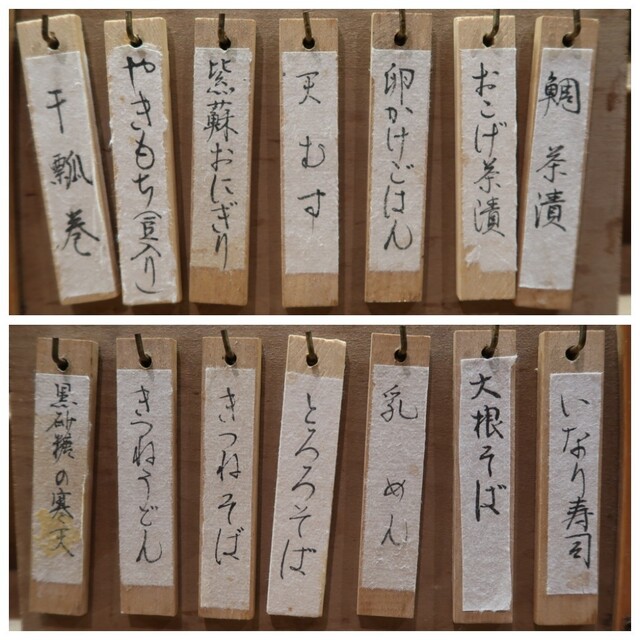 鯛茶漬
おこげ茶漬
卵かけごはん
天むす
紫蘇おにぎり
やきもち(豆入り)
干瓢巻
いなり寿司
大根そば
乳めん
とろろそば
きつねそば
きつねうどん
黒砂糖の寒天